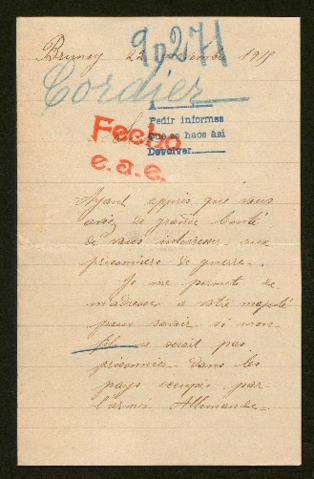 Brunoy 22 1915
9 0271
Cordier
A
Pedir informes
que se hace así
Devolver
Fecho
e.a.e.
Ayant appris que vous
avez la grande bonté
de vous intéresser aux
prisonniers de guerre.
Je me permets de
m'adresser a votre majesté
pour savoir si mon
fils ne serait pas
prisonnier dans les
pays occupés par
l'armée Allemande